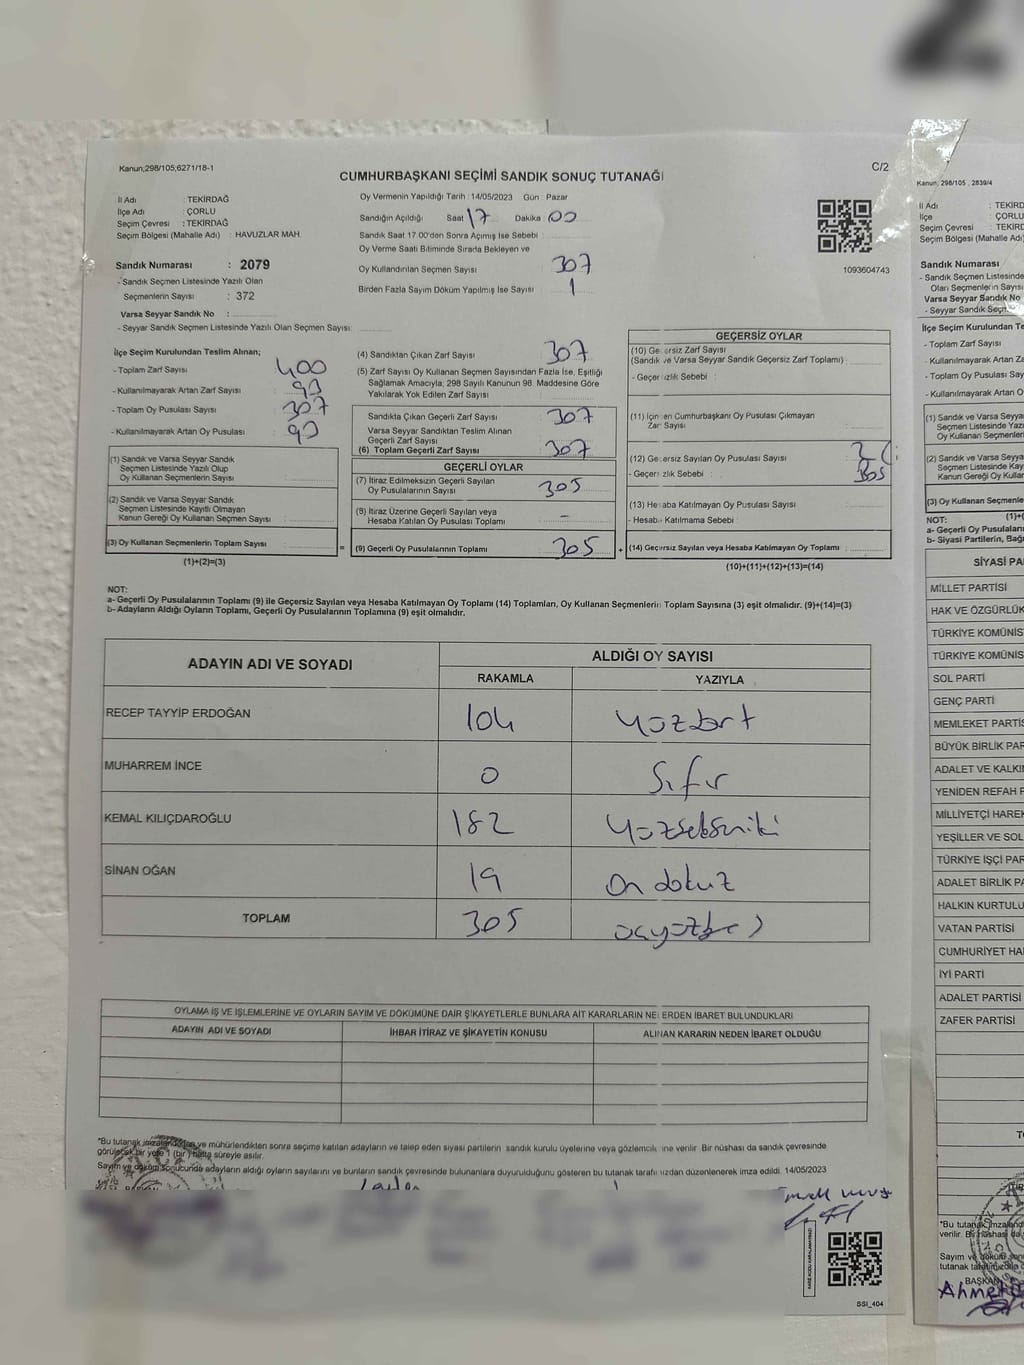 Kanun;298/105;6271/18-1
C/2
CUMHURBAŞKANI SEÇİMİ SANDIK SONUÇ TUTANAĞI
İl Adı : TEKİRDAĞ
İlçe Adı : ÇORLU
Seçim Çevresi : TEKİRDAĞ
Seçim Bölgesi (Mahalle Adı) : HAVUZLAR MAH.
Oy Vermenin Yapıldığı Tarih : 14/05/2023 Gün : Pazar
Sandığın Açıldığı Saat 17 Dakika : 00
Sandık Saat 17.00'den Sonra Açımış İse Sebebi :
Oy Verme Saati Bitiminde Sırada Bekleyen ve
Oy Kullandırılan Seçmen Sayısı 307
Birden Fazla Sayım Döküm Yapılmış İse Sayısı : 1
1093604743
Sandık Numarası : 2079
- Sandık Seçmen Listesinde Yazılı Olan
Seçmenlerin Sayısı : 372
Varsa Seyyar Sandık No :
- Seyyar Sandık Seçmen Listesinde Yazılı Olan Seçmen Sayısı:
İlçe Seçim Kurulundan Teslim Alınan;
- Toplam Zarf Sayısı 400
- Kullanılmayarak Artan Zarf Sayısı 93
- Toplam Oy Pusulası Sayısı 307
- Kullanılmayarak Artan Oy Pusulası 93
(1) Sandık ve Varsa Seyyar Sandık
Seçmen Listesinde Yazılı Olup
Oy Kullanan Seçmenlerin Sayısı :
(2) Sandık ve Varsa Seyyar Sandık
Seçmen Listesinde Kayıtlı Olmayan
Kanun Gereği Oy Kullanan Seçmen Sayısı :
(3) Oy Kullanan Seçmenlerin Toplam Sayısı
(1)+(2)=(3)
(4) Sandıktan Çıkan Zarf Sayısı : 307
(5) Zarf Sayısı Oy Kullanan Seçmen Sayısından Fazla İse, Eşitliği
Sağlamak Amacıyla; 298 Sayılı Kanunun 98. Maddesine Göre
Yakılarak Yok Edilen Zarf Sayısı :
Sandıkta Çıkan Geçerli Zarf Sayısı 307
Varsa Seyyar Sandıktan Teslim Alınan
Geçerli Zarf Sayısı
(6) Toplam Geçerli Zarf Sayısı 307
GEÇERLİ OYLAR
(7) İtiraz Edilmeksizin Geçerli Sayılan
Oy Pusulalarının Sayısı : 305
(8) İtiraz Üzerine Geçerli Sayılan veya
Hesaba Katılan Oy Pusulası Toplamı : -
= (9) Geçerli Oy Pusulalarının Toplamı 305 +
GEÇERSİZ OYLAR
(10) Geçersiz Zarf Sayısı
(Sandık ve Varsa Seyyar Sandık Geçersiz Zarf Toplamı)
- Geçersizlik Sebebi :
(11) İçinden Cumhurbaşkanı Oy Pusulası Çıkmayan
Zarf Sayısı
(12) Geçersiz Sayılan Oy Pusulası Sayısı
- Geçersizlik Sebebi : 305
(13) Hesaba Katılmayan Oy Pusulası Sayısı
- Hesaba Katılmama Sebebi :
(14) Geçersiz Sayılan veya Hesaba Katılmayan Oy Toplamı :
(10)+(11)+(12)+(13)=(14)
NOT:
a- Geçerli Oy Pusulaları Toplamı (9) ile Geçersiz Sayılan veya Hesaba Katılmayan Oy Toplamı (14) Toplamları, Oy Kullanan Seçmenlerin Toplam Sayısına (3) eşit olmalıdır. (9)+(14)=(3)
b- Adayların Aldığı Oyların Toplamı, Geçerli Oy Pusulalarının Toplamına (9) eşit olmalıdır.
ADAYIN ADI VE SOYADI
ALDIĞI OY SAYISI
RAKAMLA YAZIYLA
RECEP TAYYİP ERDOĞAN 104 yüzdört
MUHARREM İNCE 0 Sıfır
KEMAL KILIÇDAROĞLU 182 Yüzsekseniki
SİNAN OĞAN 19 On dokuz
TOPLAM 305 üçyüzbeş
OYLAMA İŞ VE İŞLEMLERİNE VE OYLARIN SAYIM VE DÖKÜMÜNE DAİR ŞİKAYETLERLE BUNLARA AİT KARARLARIN NELERDEN İBARET BULUNDUKLARI
ADAYIN ADI VE SOYADI İHBAR İTİRAZ VE ŞİKAYETİN KONUSU ALINAN KARARIN NEDEN İBARET OLDUĞU
*Bu tutanak imzalandıktan ve mühürlendikten sonra seçime katılan adayların ve talep eden siyasi partilerin sandık kurulu üyelerine veya gözlemcilerine verilir. Bir nüshası da sandık çevresinde
görülecek bir yere 1 (bir) hafta süreyle asılır.
Sayım ve döküm sonucunda adayların aldığı oyların sayılarını ve bunların sandık çevresinde bulunanlara duyurulduğunu gösteren bu tutanak tarafımızdan düzenlenerek imza edildi. 14/05/2023
SSI_404
Kanun; 298/105 , 2839/4
İl Adı : TEKİRD
İlçe : ÇORLU
Seçim Çevresi : TEKİRD
Seçim Bölgesi (Mahalle Adı)
Sandık Numarası
- Sandık Seçmen Listesinde
Olan Seçmenlerin Sayısı
Varsa Seyyar Sandık No
İlçe Seçim Kurulundan T
- Toplam Zarf Sayısı
- Kullanılmayarak Artan Za
- Toplam Oy Pusulası Sayıs
- Kullanılmayarak Artan Oy
(1) Sandık ve Varsa Seyyar
Seçmen Listesinde Yazı
Oy Kullanan Seçmenler
(2) Sandık ve Varsa Seyyar
Seçmen Listesinde Kay
Kanun Gereği Oy Kullar
(3) Oy Kullanan Seçmenle
(1)+
NOT:
a- Geçerli Oy Pusuları
b- Siyasi Partilerin, Bağ
SİYASİ PA
MİLLET PARTİSİ
HAK VE ÖZGÜRLÜK
TÜRKİYE KOMÜNİS
TÜRKİYE KOMÜNİS
SOL PARTİ
GENÇ PARTİ
MEMLEKET PARTİS
BÜYÜK BİRLİK PAR
ADALET VE KALKI
YENİDEN REFAH P
MİLLİYETÇİ HAREK
YEŞİLLER VE SOL
TÜRKİYE İŞÇİ PAR
ADALET BİRLİK PA
HALKIN KURTULU
VATAN PARTİSİ
CUMHURİYET HA
İYİ PARTİ
ADALET PARTİSİ
ZAFER PARTİSİ
*Bu tutanak imzalan
verilir.
Sayım ve döküm son
tutanak tarafımızdan
BAŞKAN
Ahmet